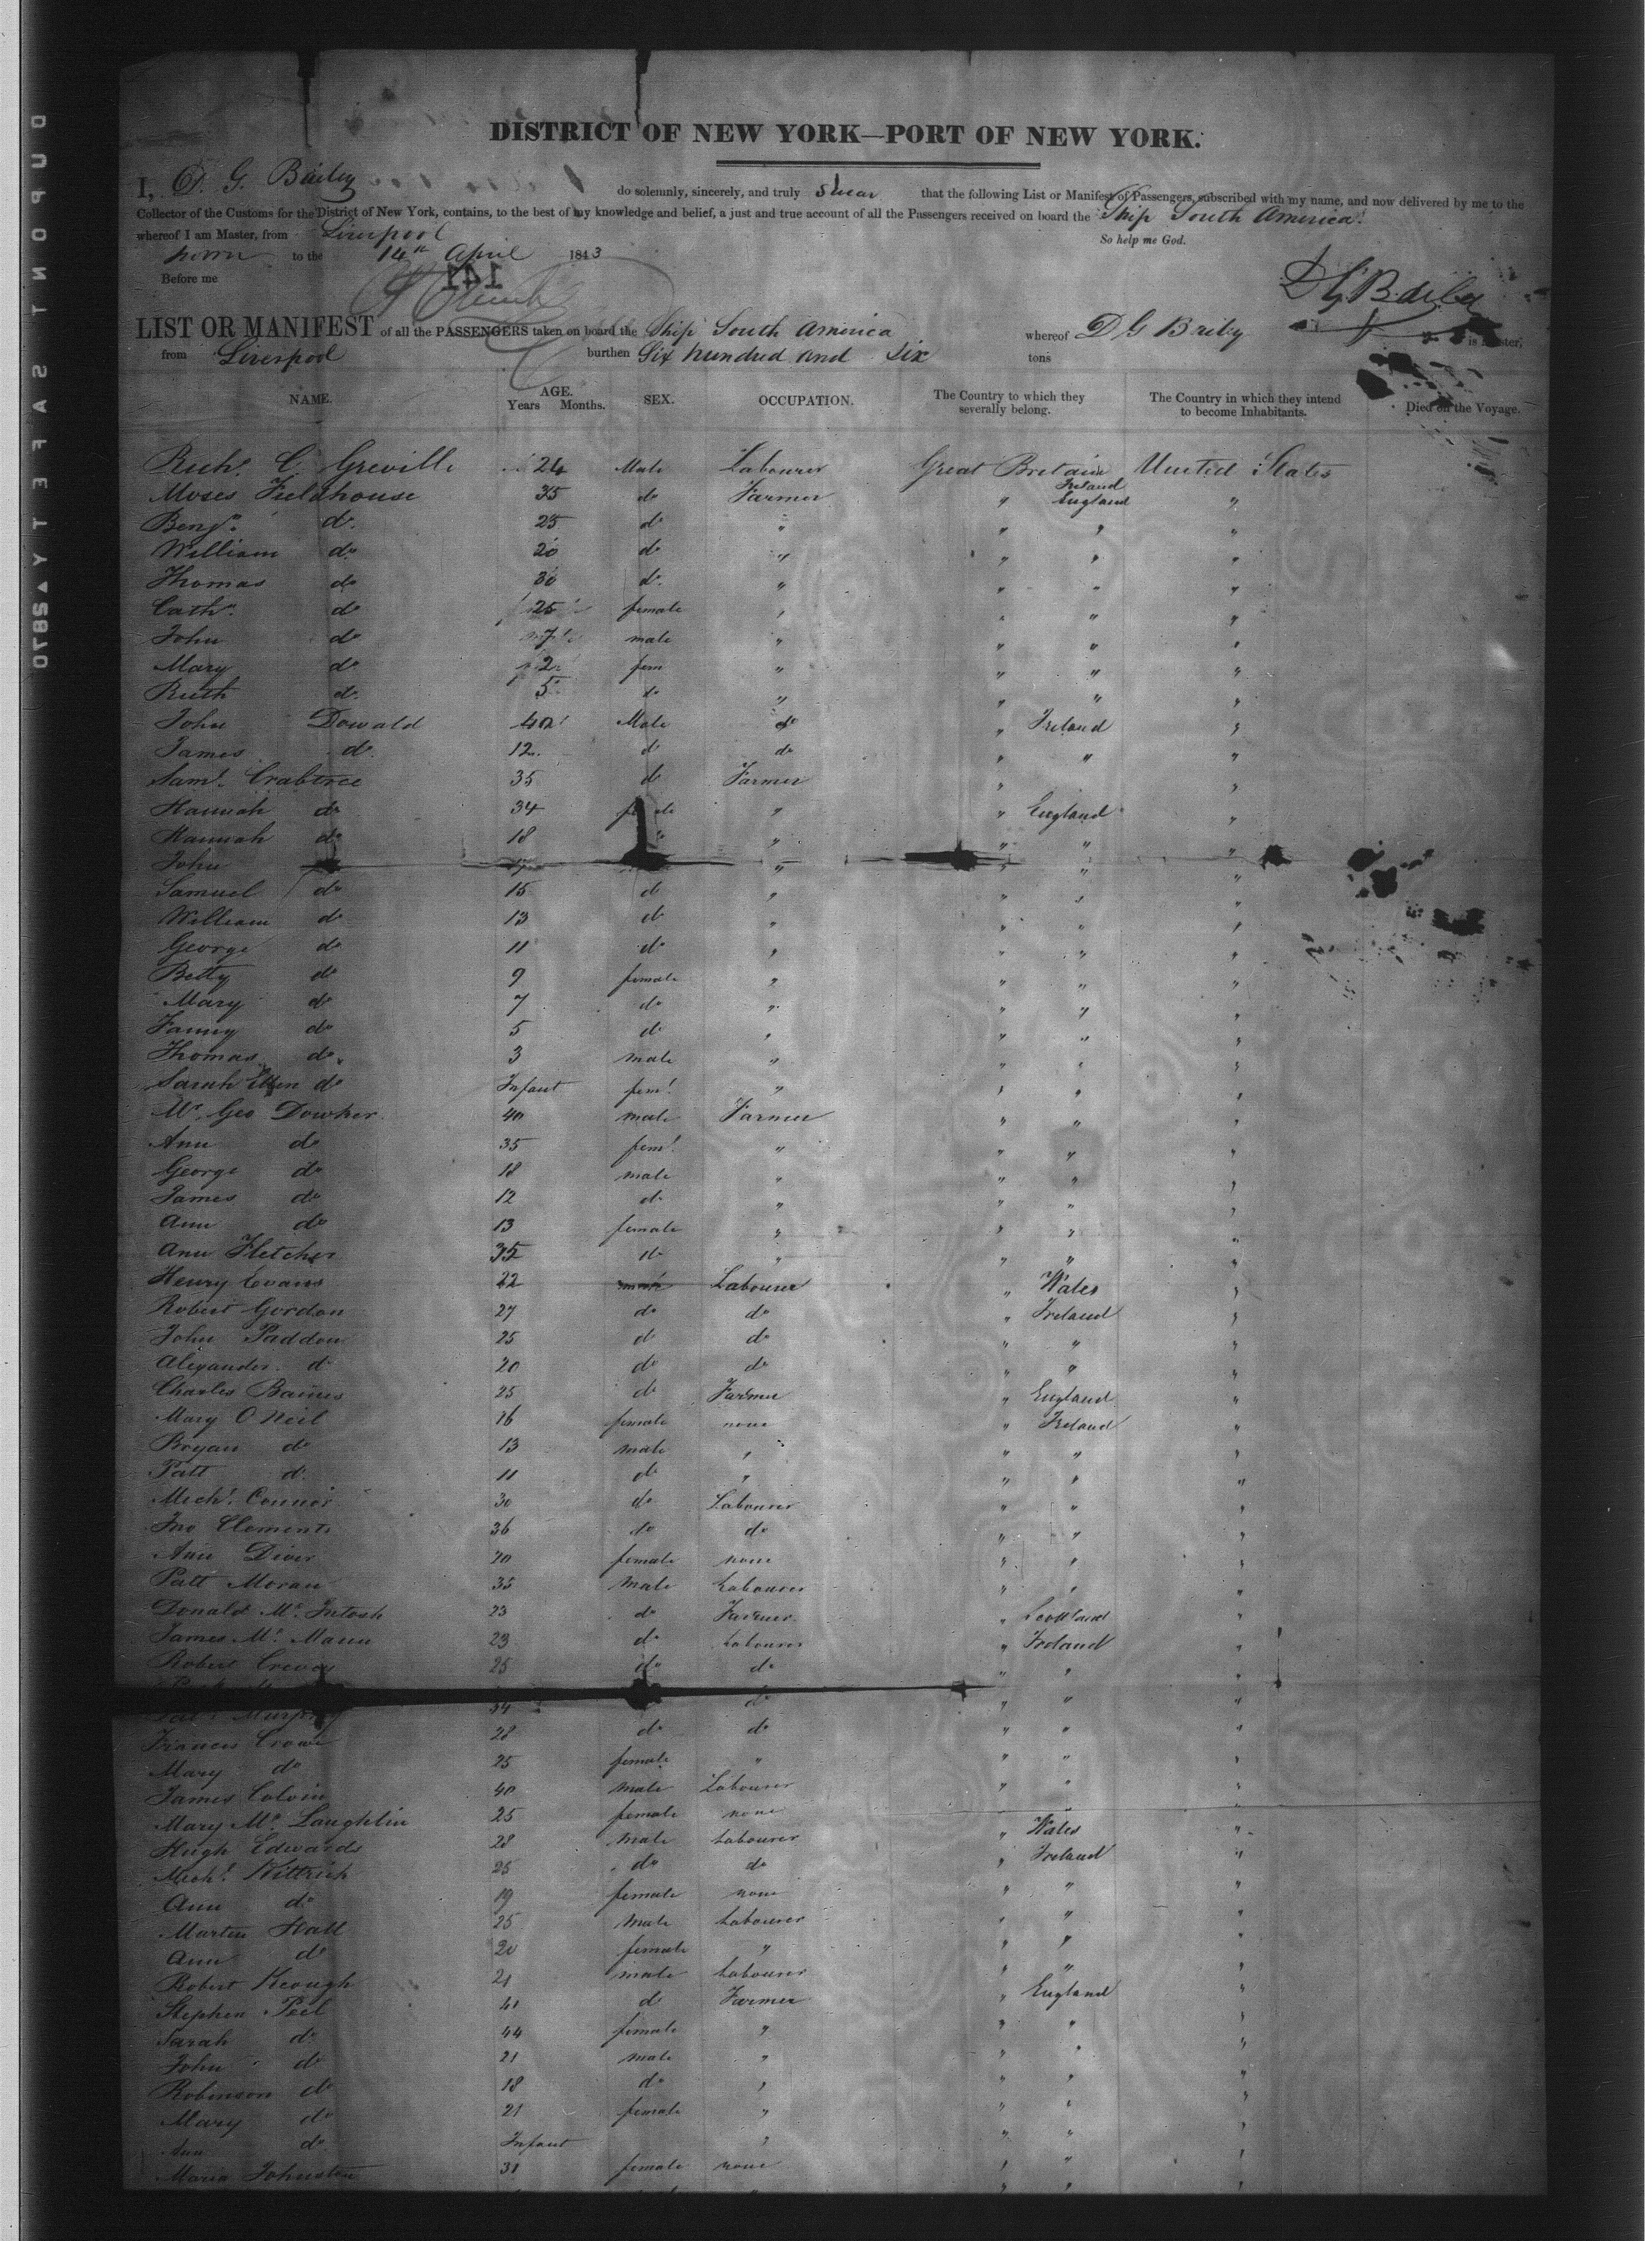 DISTRICT OF NEW YORK—PORT OF NEW YORK.
I, D. G. Bailey do solemnly, sincerely, and truly swear that the following List or Manifest of Passengers, subscribed with my name, and now delivered by me to the
Collector of the Customs for the District of New York, contains, to the best of my knowledge and belief, a just and true account of all the Passengers received on board the Ship South America
whereof I am Master, from Liverpool So help me God.
to the 14th April 1843
Before me
141
LIST OR MANIFEST of all the PASSENGERS taken on board the Ship South America whereof D G Briby is Master,
from Liverpool burthen Six hundred and Six tons
NAME. AGE. Years Months. SEX. OCCUPATION. The Country to which they severally belong. The Country in which they intend to become Inhabitants. Died on the Voyage.
Richd. C. Greville 24 Male Labourer Great Britain Ireland United States
Moses Fieldhouse 35 do Farmer " England "
Benjn. do. 25 do " " " "
William do. 20 do " " " "
Thomas do 30 do. " " " "
Cathn. do 25 female " " " "
John do 7 male " " " "
Mary do 2 fem " " " "
Ruth do. 5 do " " " "
John Dowald 40 Male do " Ireland "
James do. 12 d do " " "
Saml. Crabtree 35 d Farmer " "
Hannah do 34 female " " England "
Hannah do 18 " " " " "
John " " " "
Samuel do 15 d " " " "
William do 13 do " " " "
George do 11 do " " " "
Betty do 9 female " " " "
Mary do 7 do " " " "
Fanny do 5 d " " " "
Thomas do 3 male " " " "
Sarah Ellen do Infant feml " " " "
Mr. Geo Dowker 40 male Farmer " " "
Ann do 35 feml. " " " "
George do 18 male " " " "
James do 12 do " " " "
Ann do 13 female " " " "
Ann Fletcher 35 do " " " "
Henry Evans 22 male Labourer " Wales "
Robert Gordon 27 do do " Ireland "
John Paddon 25 d do " " "
Alexander do 20 do do " " "
Charles Baines 25 do Farmer " England "
Mary O Neil 16 female none " Ireland "
Bryan do 13 male " " " "
Patt d. 11 do " " " "
Michl. Connor 30 do Labourer " " "
Jno Clements 36 do do " " "
Ann Diver 20 female none " " "
Patt Moran 35 Male Labourer " " "
Donald Mc. Intosh 23 do Farmer " Scotland "
James Mc. Mann 23 do Labourer " Ireland "
Robert 25 do do " " "
Murphy 34 do " " "
Francis Crowe 28 do do " " "
Mary do 25 female " " " "
James Colvin 40 male Labourer " " "
Mary Mc. Laughlin 25 female none "
Hugh Edwards 28 Male Labourer " Wales "
Michl. Kittrich 25 do do " Ireland "
Ann do 19 female none " " "
Martin Hall 25 Male Labourer " " "
Ann do 20 female " " " "
Robert Keough 21 male Labourer " " "
Stephen Peel 41 d Farmer " England "
Sarah do 44 female " " " "
John do 21 male " " " "
Robinson do 18 do " " " "
Mary do 21 female " " " "
Ann do Infant " " " "
Maria Johnston 31 female none " " "
DUPONT SAFETY